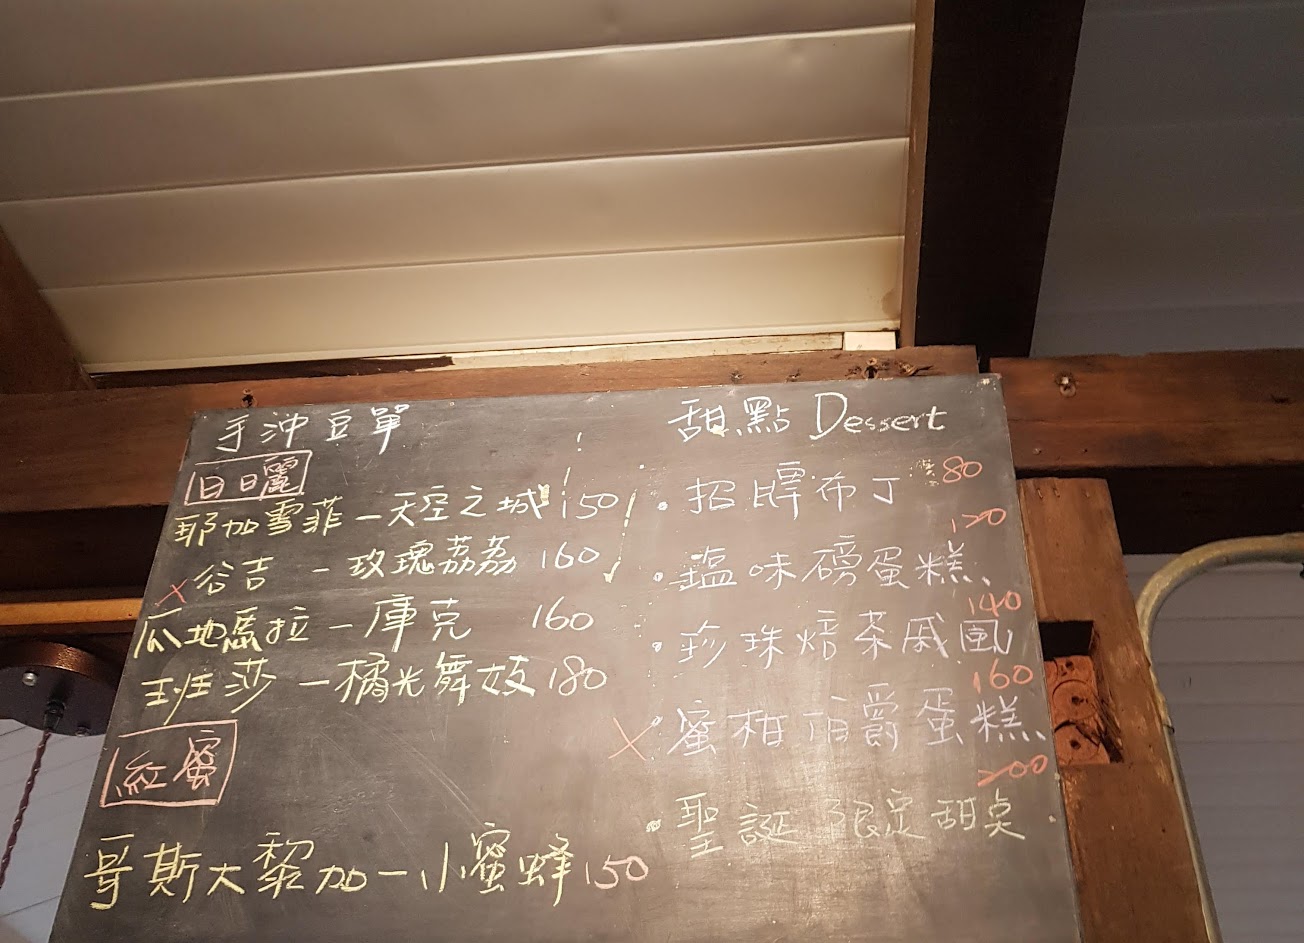 手沖豆單
日曬
耶加雪菲－天空之城 150
x 谷吉 － 玫瑰荔荔 160
瓜地馬拉－庫克 160
班莎－橘光舞妓 180
紅蜜
哥斯大黎加－小蜜蜂 150
甜點 Dessert
·招牌布丁 80
·鹽味磅蛋糕 120
·珍珠焙茶戚風 140
x·蜜柑伯爵蛋糕 160
·聖誕限定甜點 200